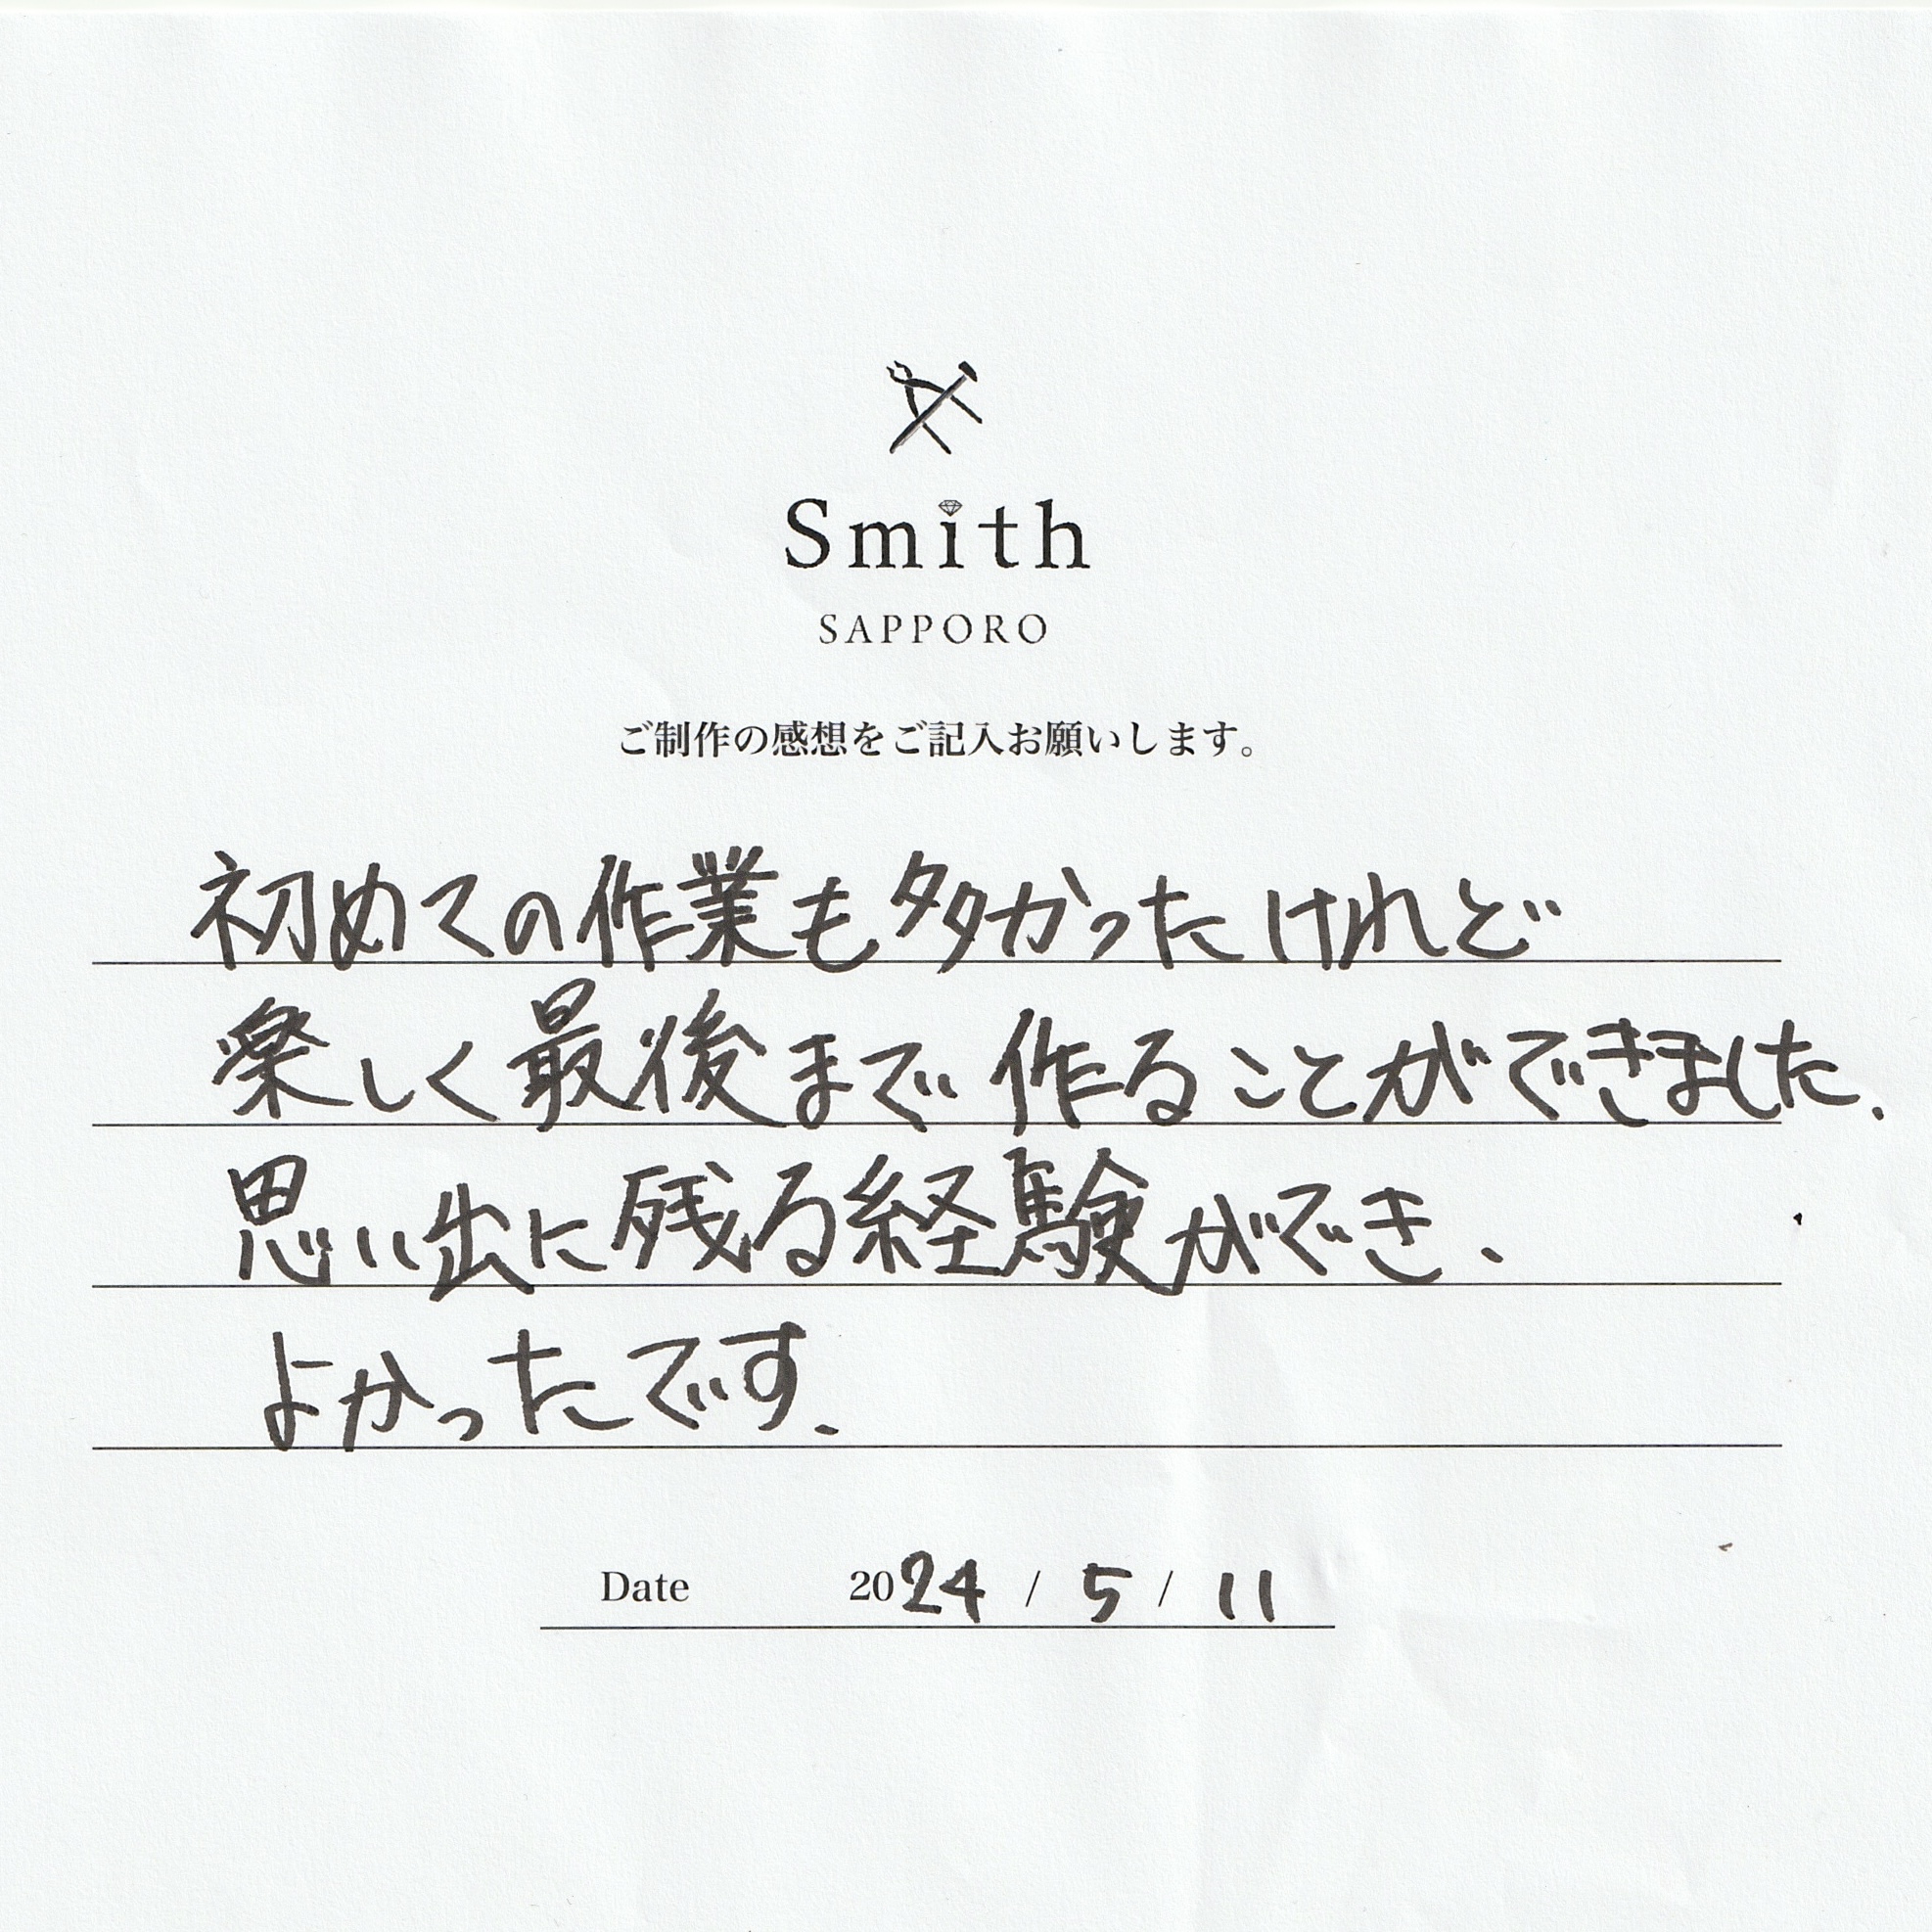 Smith
SAPPORO
ご制作の感想をご記入お願いします。
初めての作業も多かったけれど
楽しく最後まで作ることができました.
思い出に残る経験ができ、
よかったです.
Date 2024 / 5 / 11